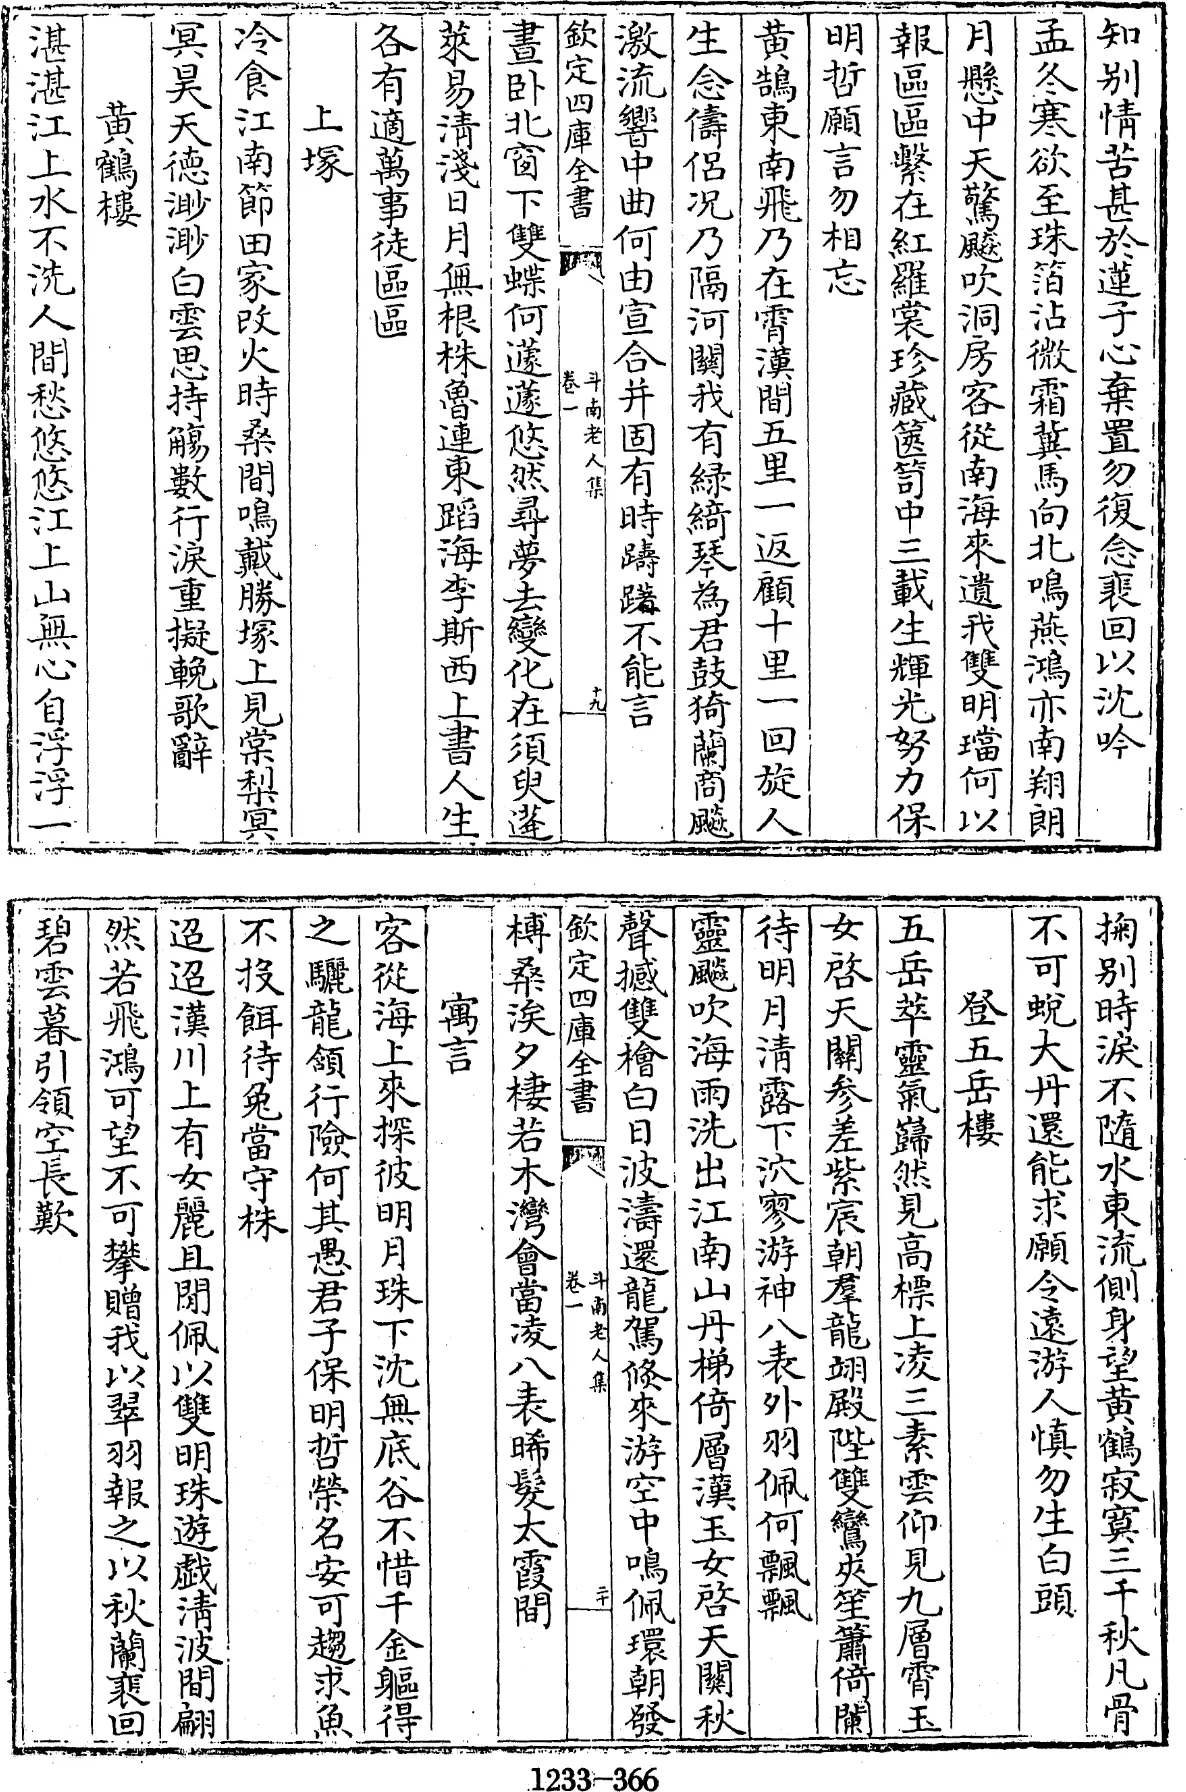 知別情苦甚於蓮子心棄置勿復念裴回以沈吟
孟冬寒欲至珠箔沾微霜冀馬向北鳴燕鴻亦南翔朗
月懸中天驚飈吹洞房客從南海來遺我雙明璫何以
報區區繫在紅羅裳珍藏篋笥中三載生輝光努力保
明哲願言勿相忘
黄鵠東南飛乃在霄漢間五里一返顧十里一回旋人
生念儔侣况乃隔河關我有緑綺琴為君鼓猗蘭商飈
激流響中曲何由宣合并固有時躊躇不能言
欽定四庫全書
斗南老人集
卷一
十九
晝卧北窗下雙蝶何蘧蘧悠然尋夢去變化在須臾蓬
萊易清淺日月無根株魯連東蹈海李斯西上書人生
各有適萬事徒區區
上塚
冷食江南節田家改火時桑間鳴戴勝塚上見棠梨冥
冥昊天德渺渺白雲思持觴數行淚重擬輓歌辭
黄鶴樓
湛湛江上水不洗人間愁悠悠江上山無心自浮浮一
掬別時淚不隨水東流側身望黄鶴寂寞三千秋凡骨
不可蜕大丹還能求願令遠游人慎勿生白頭
登五岳樓
五岳萃靈氣巋然見高標上凌三素雲仰見九層霄玉
女啓天關参差紫宸朝羣龍翊殿陛雙鸞夾笙簫倚闌
待明月清露下泬寥游神八表外羽佩何飄飄
靈飈吹海雨洗出江南山丹梯倚層漢玉女啓天關秋
聲撼雙檜白日波濤還龍駕倐來游空中鳴佩環朝發
欽定四庫全書
斗南老人集
卷一
二十
榑桑涘夕棲若木灣會當凌八表晞髮太霞間
寓言
客從海上來探彼明月珠下沈無底谷不惜千金軀得
之驪龍頷行險何其愚君子保明哲榮名安可趨求魚
不投餌待兔當守株
迢迢漢川上有女麗且閒佩以雙明珠遊戲清波間翩
然若飛鴻可望不可攀贈我以翠羽報之以秋蘭裴回
碧雲暮引領空長歎
1233-366